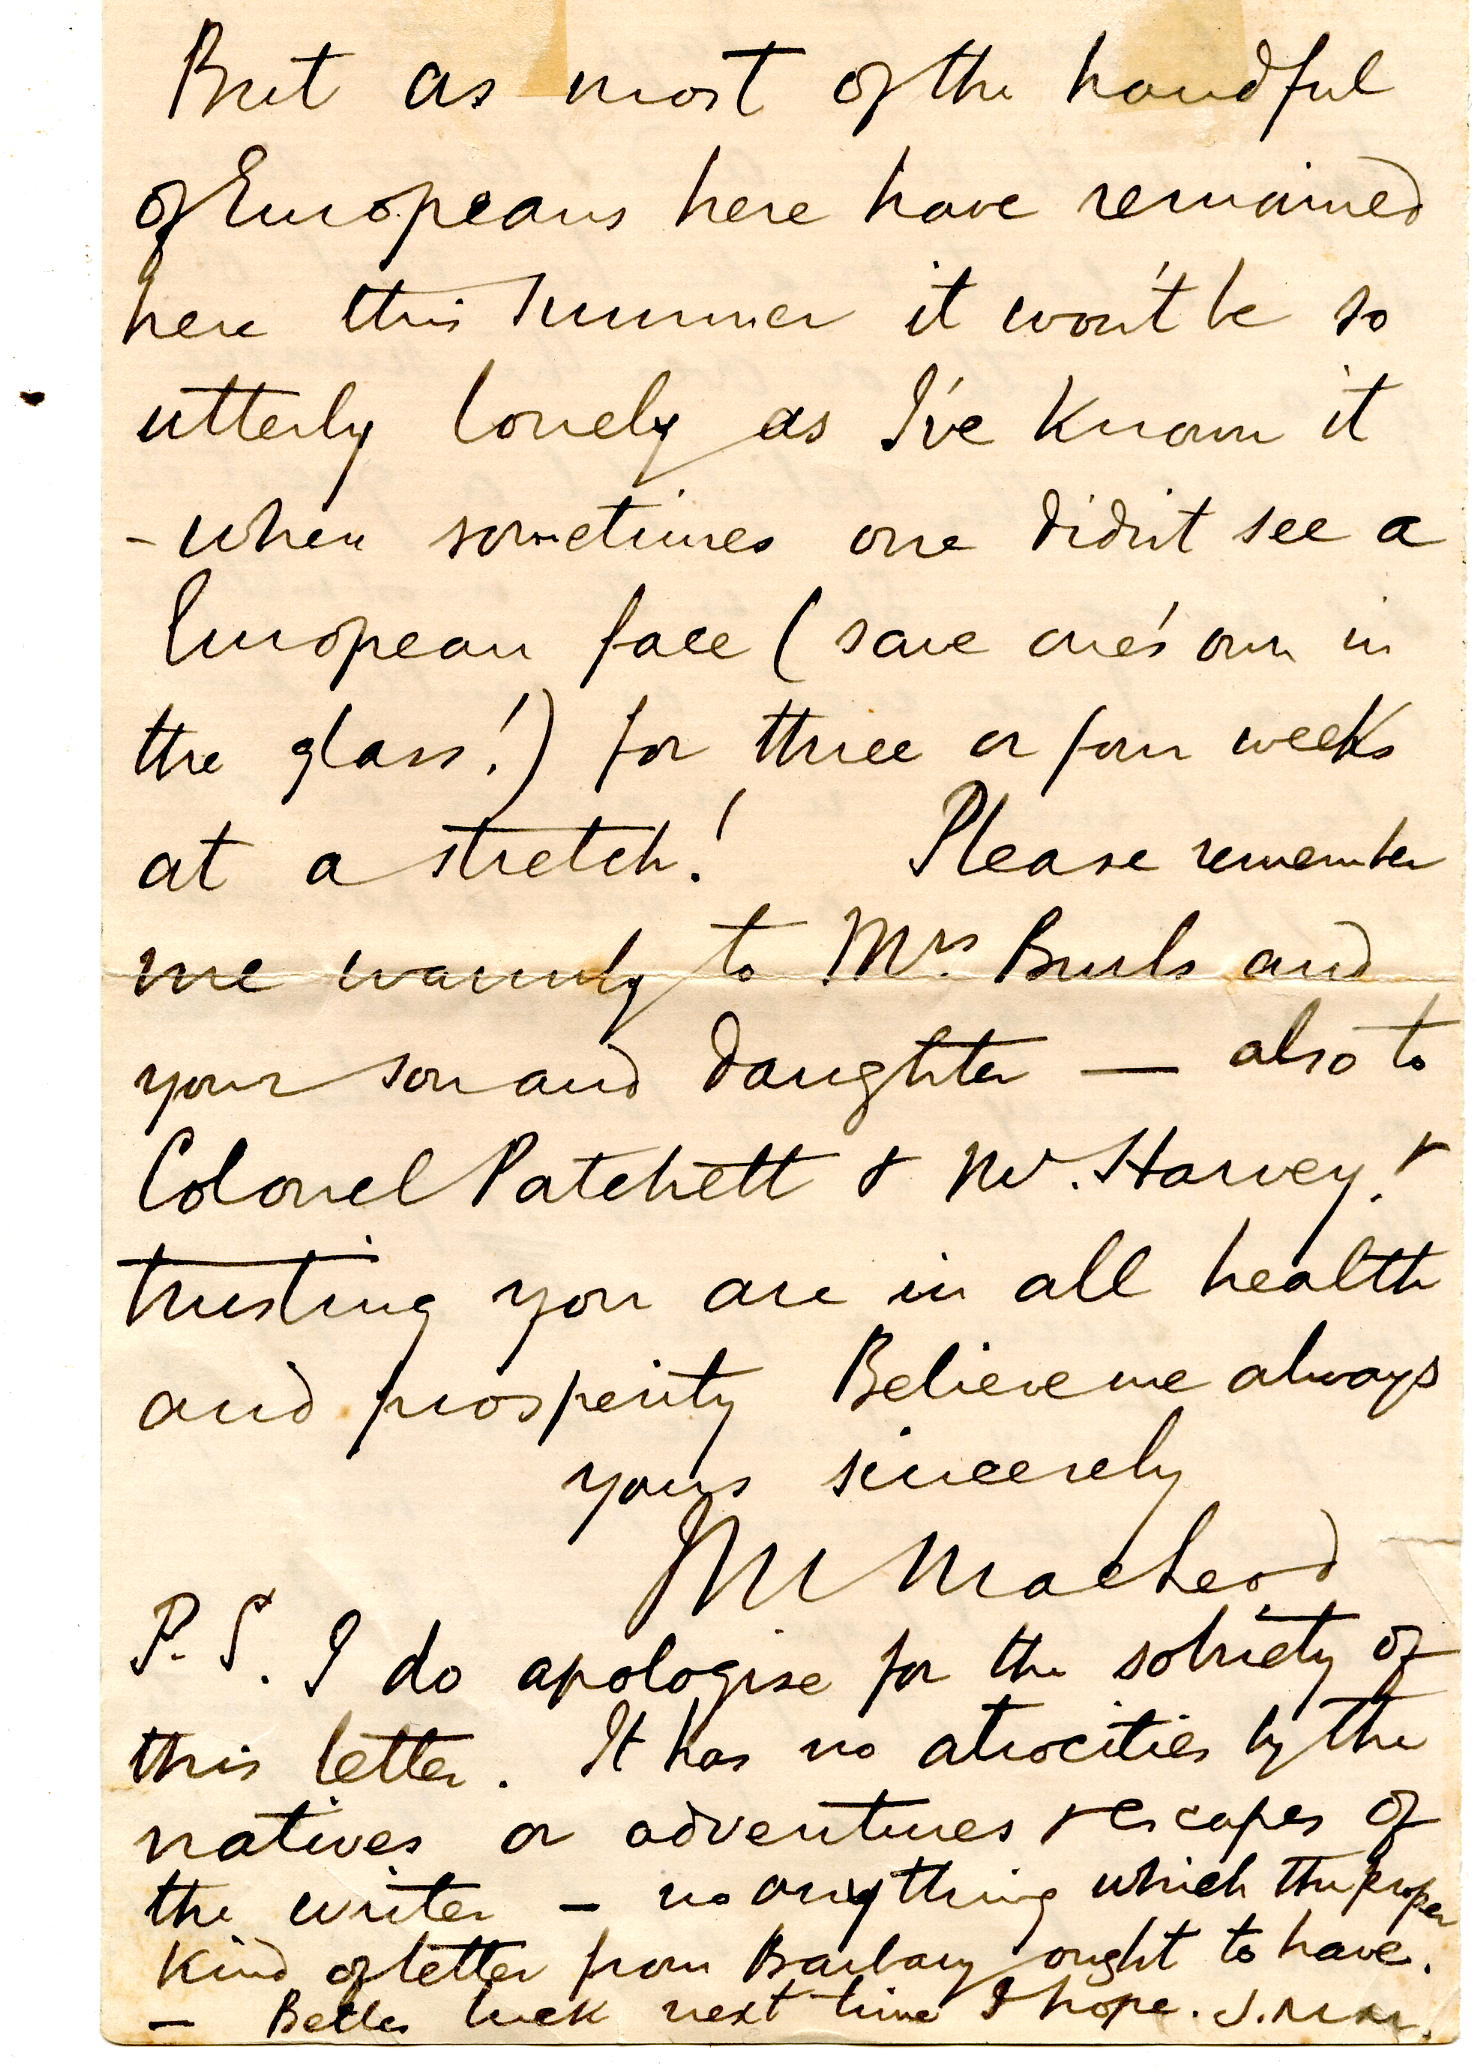 But as most of the handful
of Europeans here have remained
here this summer it won't be so
utterly lonely as I've known it
- when sometimes one didn't see a
European face (save one's own in
the glass!) for three or four weeks
at a stretch! Please remember
me warmly to Mrs. Burls and
your son and daughter — also to
Colonel Patchett & Mr. Harvey. &
trusting you are in all health
and prosperity Believe me always
yours sincerely
M MacLeod
P.S. I do apologise for the sobriety of
this letter. It has no atrocities by the
natives or adventures & escapes of
the writer – no anything which the proper
kind of letter from Barbary ought to have.
– Better luck next time I hope. J.M.M.